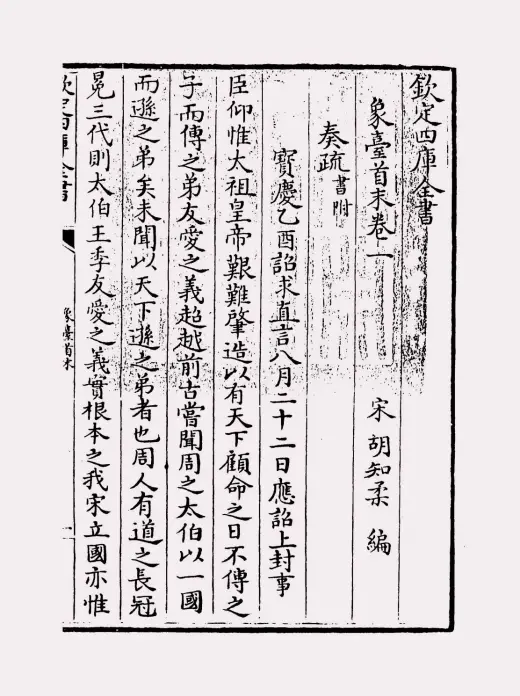 欽定四庫全書
象臺首末卷一
宋 胡知柔 編
奏疏書附
寶慶乙酉詔求直言八月二十二日應詔上封事
臣仰惟太祖皇帝艱難肇造以有天下顧命之日不傳之
子而傳之弟友愛之義超越前古嘗聞周之太伯以一國
而遜之弟矣未聞以天下遜之弟者也周人有道之長冠
冕三代則太伯王季友愛之義實根本之我宋立國亦惟
欽定四庫全書
象臺首末